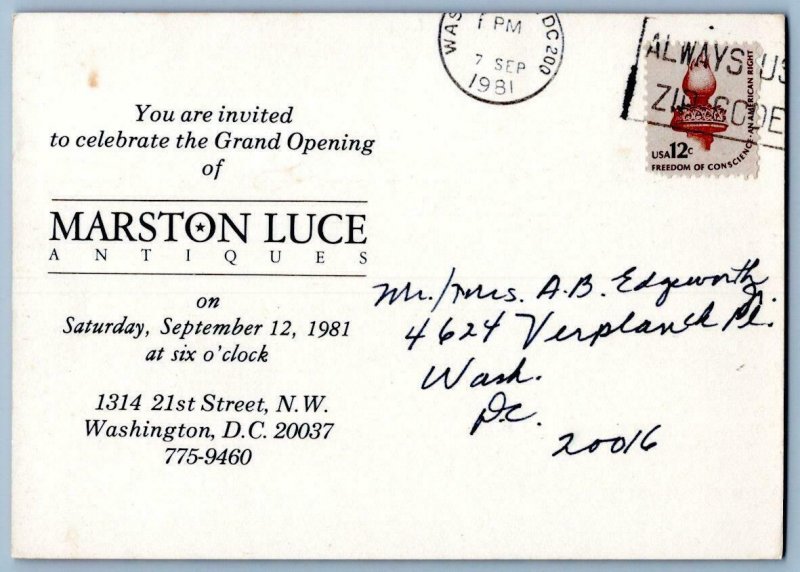 You are invited
to celebrate the Grand Opening
of
MARSTON LUCE
ANTIQUES
on
Saturday, September 12, 1981
at six o'clock
1314 21st Street, N.W.
Washington, D.C. 20037
775-9460
WAS DC 200
1 PM
7 SEP
1981
ALWAYS US
ZIP CODE
USA 12c
FREEDOM OF CONSCIENCE • AN AMERICAN RIGHT
Mr./Mrs. A.B. Edgeworth
4624 Verplanck Pl.
Wash.
D.C.
20016